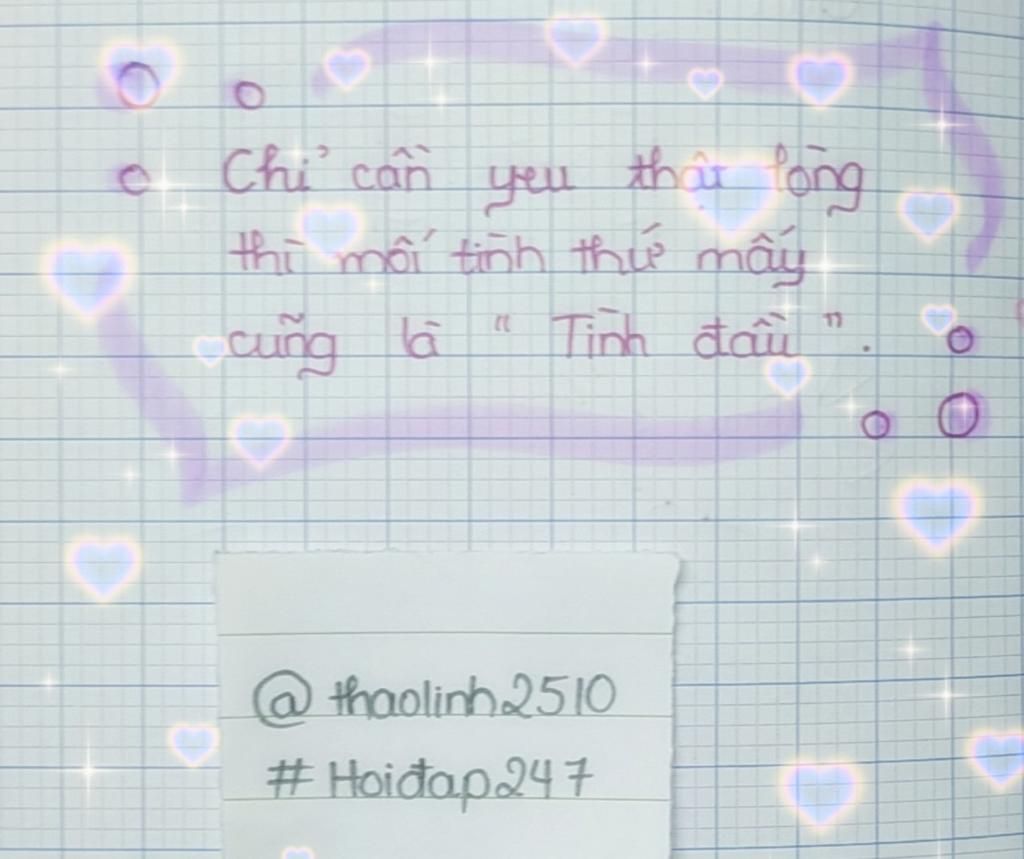 Chỉ cần yeu thật lòng
thì mối tình thứ mấy
cũng là " Tình đầu ".
@thaolinh2510
#Hoiđap247